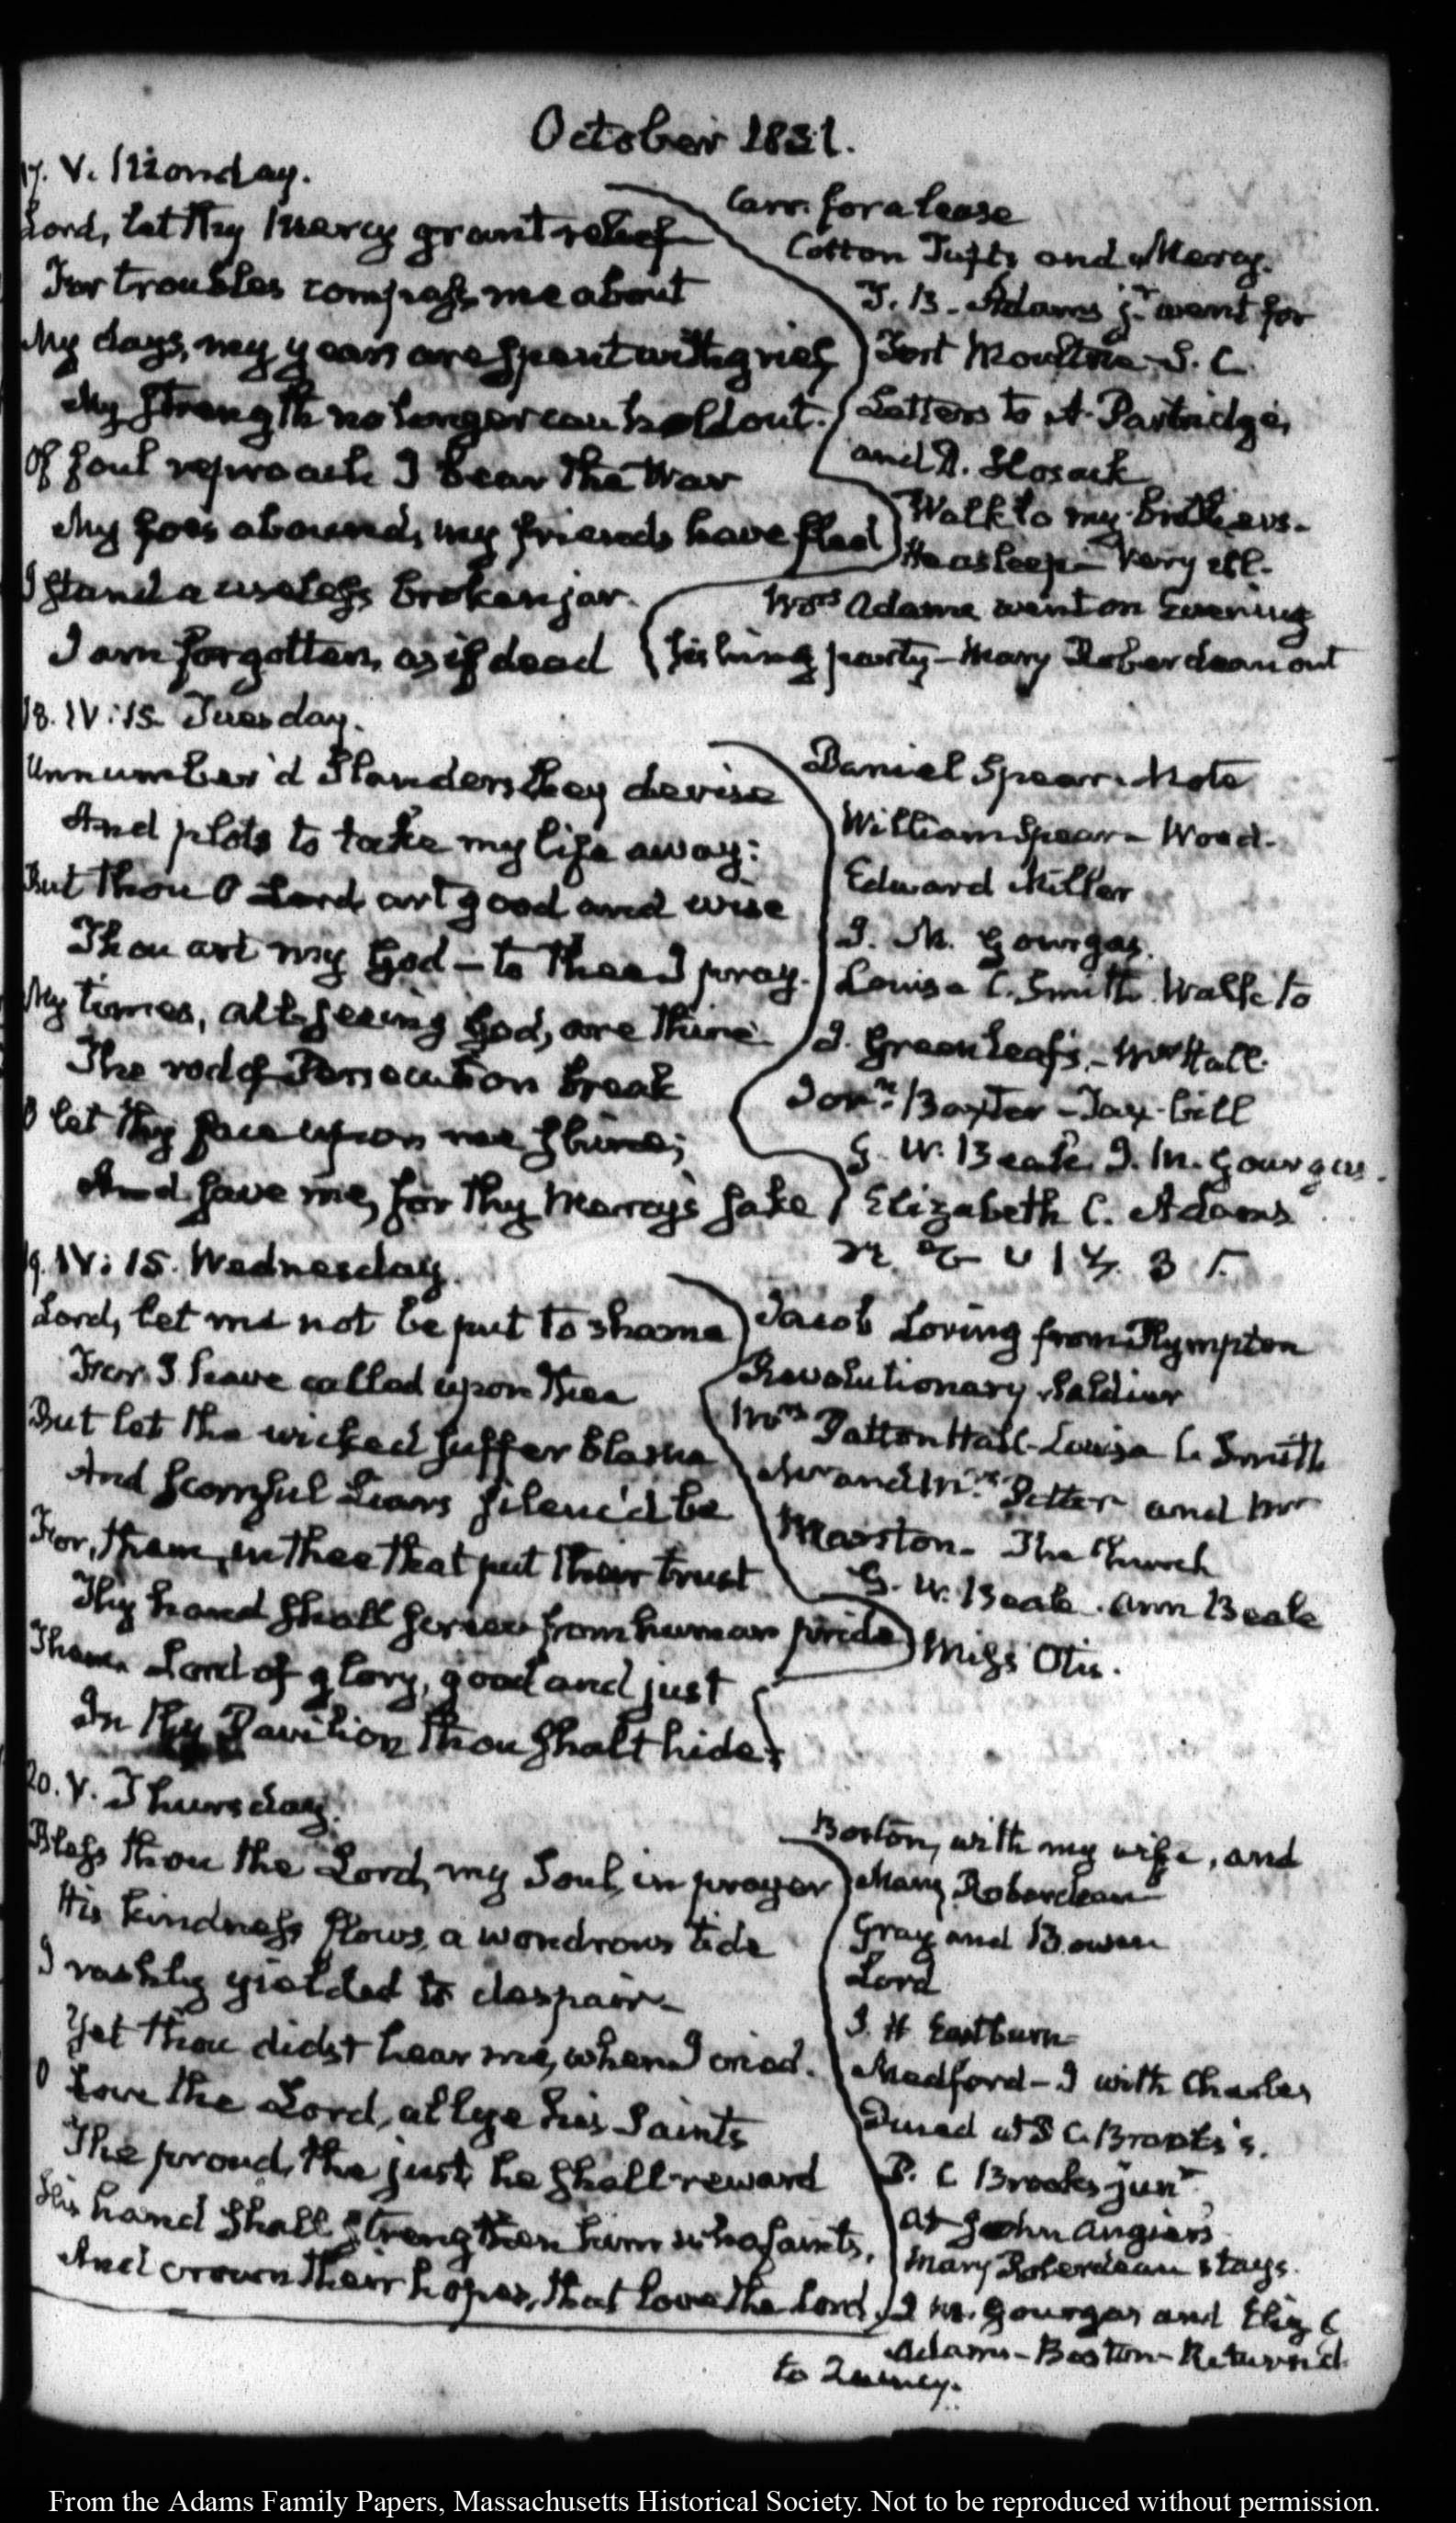 October 1831.
17. V. Monday.
Lord, let thy mercy grant relief
For troubles compass me about
My days, my years are spent with grief
My strength no longer can hold out.
Of foul reproach I bear the War
My foes abound, my friends have fled
I stand a useless broken jar.
I am forgotten, as if dead
Carr. for a lease
Cotton Tufts and Mercy.
T. B. Adams jr. went for
Fort Moultrie S. C.
Letters to A. Partridge,
and D. Hosack
Walk to my brothers.
He asleep - Very ill.
Mrs Adams went on Evening
fishing party - Mary Roberdeau out
18. IV:15. Tuesday.
Unnumber'd Slanders they devise
And plots to take my life away:
But thou O Lord art good and wise
Thou art my God - to thee I pray.
My times, all-seeing God, are thine
The rod of Persecution break
O let thy face upon me shine;
And save me, for thy Mercy's sake
Daniel Spear. Note
William Spear - Wood.
Edward Miller
I. M. Gourgas.
Louisa C. Smith. Walk to
D. Greenleaf's. - Mrs Hall.
Baxter - Tax-bill
G. W. Beale. I. M. Gourgas.
Elizabeth C. Adams
19. IV:15. Wednesday.
Lord, let me not be put to shame
For I have called upon thee
But let the wicked suffer blame
And scornful Liars silenc'd be
For, them, in thee that put their trust
Thy hand shall screen from human pride
Them Lord of glory, good and just
In thy Pavilion thou shalt hide.
Jacob Loring from Plympton
Revolutionary Soldier
Mrs Hall - Louisa C. Smith
Mr and Mrs and Mr
Marston. The Church
G. W. Beale. Ann Beale
Miss Otis.
20. V. Thursday.
Bless thou the Lord, my Soul, in prayer
His kindness flows, a wondrous tide
I rashly yielded to despair -
Yet thou didst hear me, when I cried.
O Love the Lord, all ye his Saints
The proud, the just, he shall reward
His hand shall strengthen him who faints,
And crown their hopes, that love the Lord.
Boston, with my wife, and
Mary Roberdeau
Gray and Bowen
Lord
I. H. Eastburn
Medford - I with Charles
Dined at P. C. Brooks's.
P. C Brooks junr
at John Angier's
Mary Roberdeau stays.
I M. Gourgas and Eliz. C
Adams - Boston - Return'd
to Quincy.
From the Adams Family Papers, Massachusetts Historical Society. Not to be reproduced without permission.